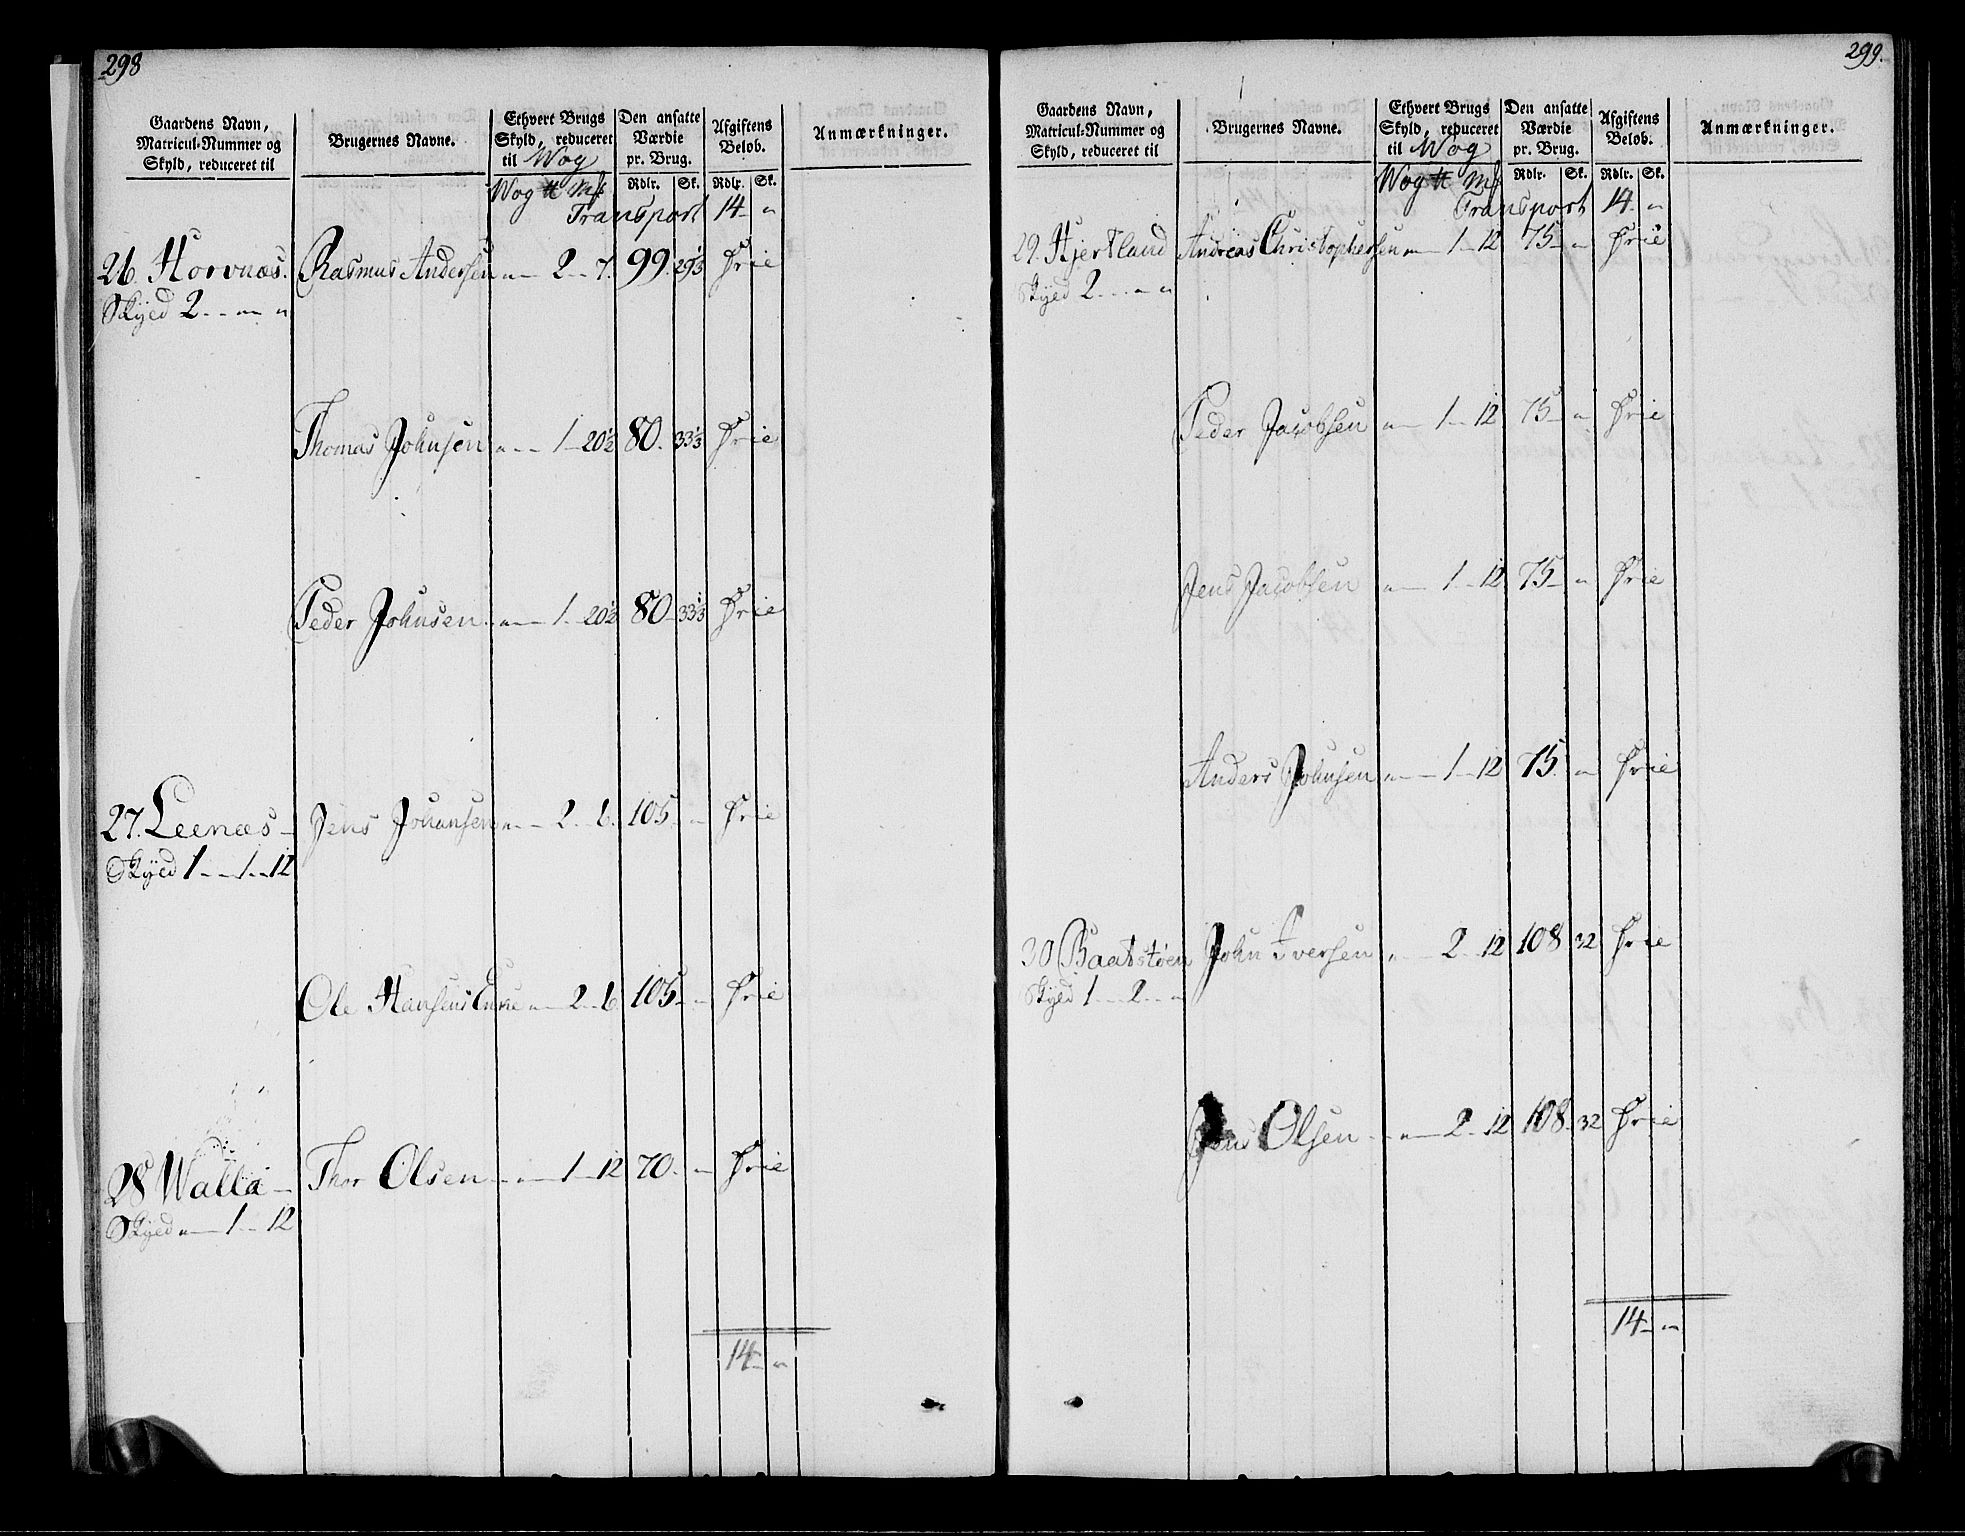 298
Gaardens Navn, Matricul-Nummer og Skyld, reduceret til
Brugernes Navne.
Ethvert Brugs Skyld, reduceret til Wog
Den ansatte Værdie pr. Brug.
Afgiftens Beløb.
Anmærkninger.
Wog ℔ Mk Rdlr. Sk. Rdlr. Sk.
Transport 14 - "
26. Horvnæs. Rasmus Andersen " - 2 - 7. 99. 29 1/3 Frie
Skyed 2 - - " - "
Thomas Johnsen " - - 1 - 20 1/2 80. 33 1/3 Frie
Peder Johnsen " - 1 - 20 1/2 80 - 33 1/3 Frie
27. Leenæs - Jens Johansen " - 2 - 6. 105. - " Frie
Skyed 1 - - 1 - 12
Ole Hansens Enke " - 2 - 6 105 - " Frie
28 Walla - Thor Olsen - " - 1 - 12 70. - " Frie
Skyed " - 1 - 12
14 - "
299.
Gaardens Navn, Matricul-Nummer og Skyld, reduceret til
Brugernes Navne.
Ethvert Brugs Skyld, reduceret til Wog
Den ansatte Værdie pr. Brug.
Afgiftens Beløb.
Anmærkninger.
Wog ℔ Mk Rdlr. Sk. Rdlr. Sk.
Transport 14 - "
29. Hjertland Andreas Christophersen " - 1 - 12 75 - " Frie
Skyed 2 - - " - "
Peder Jacobsen " - 1 - 12 75 - " Frie
Jens Jacobsen " - 1 - 12 75 - " Frie
Anders Johnsen " - - 1 - 12 75. - " Frie
30 Baatstøen John Iversen " - 2 - 12 108 32 Frie
Skyed 1 - - 2 - - "
Jens Olsen - " - 2 - 12 108 - 32 Frie
14 - "